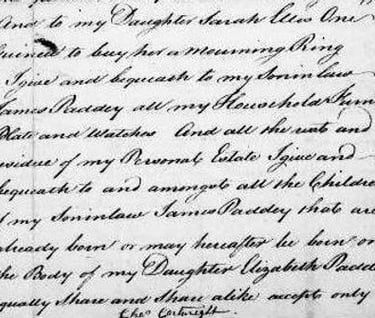 And to my Daughter Sarah Ellis One
Guinea to buy her a Mourning Ring
I give and bequeath to my Soninlaw
James Paddey all my Household Furn
Plate and Watches And all the rest and
residue of my Personal Estate I give and
bequeath to and amongst all the Children
of my Soninlaw James Paddey that are
already born or may hereafter be born on
the Body of my Daughter Elizabeth Padd
equally Share and Share alike accepts only
Thos Cartwright.